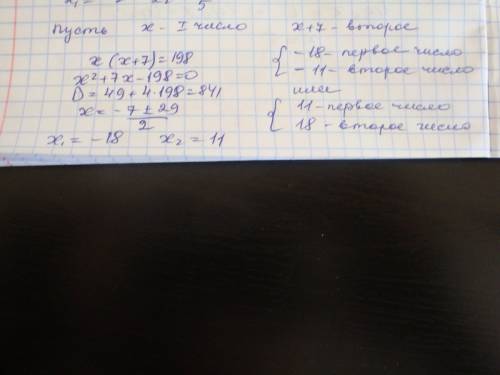 Пусть x - I число x+7 - второе
x (x+7) = 198
x² + 7x - 198 = 0
D = 49 + 4·198 = 841
x = - 7 ± 29 / 2
x₁ = - 18 x₂ = 11
{ - 18 - первое число
- 11 - второе число
или
{ 11 - первое число
18 - второе число